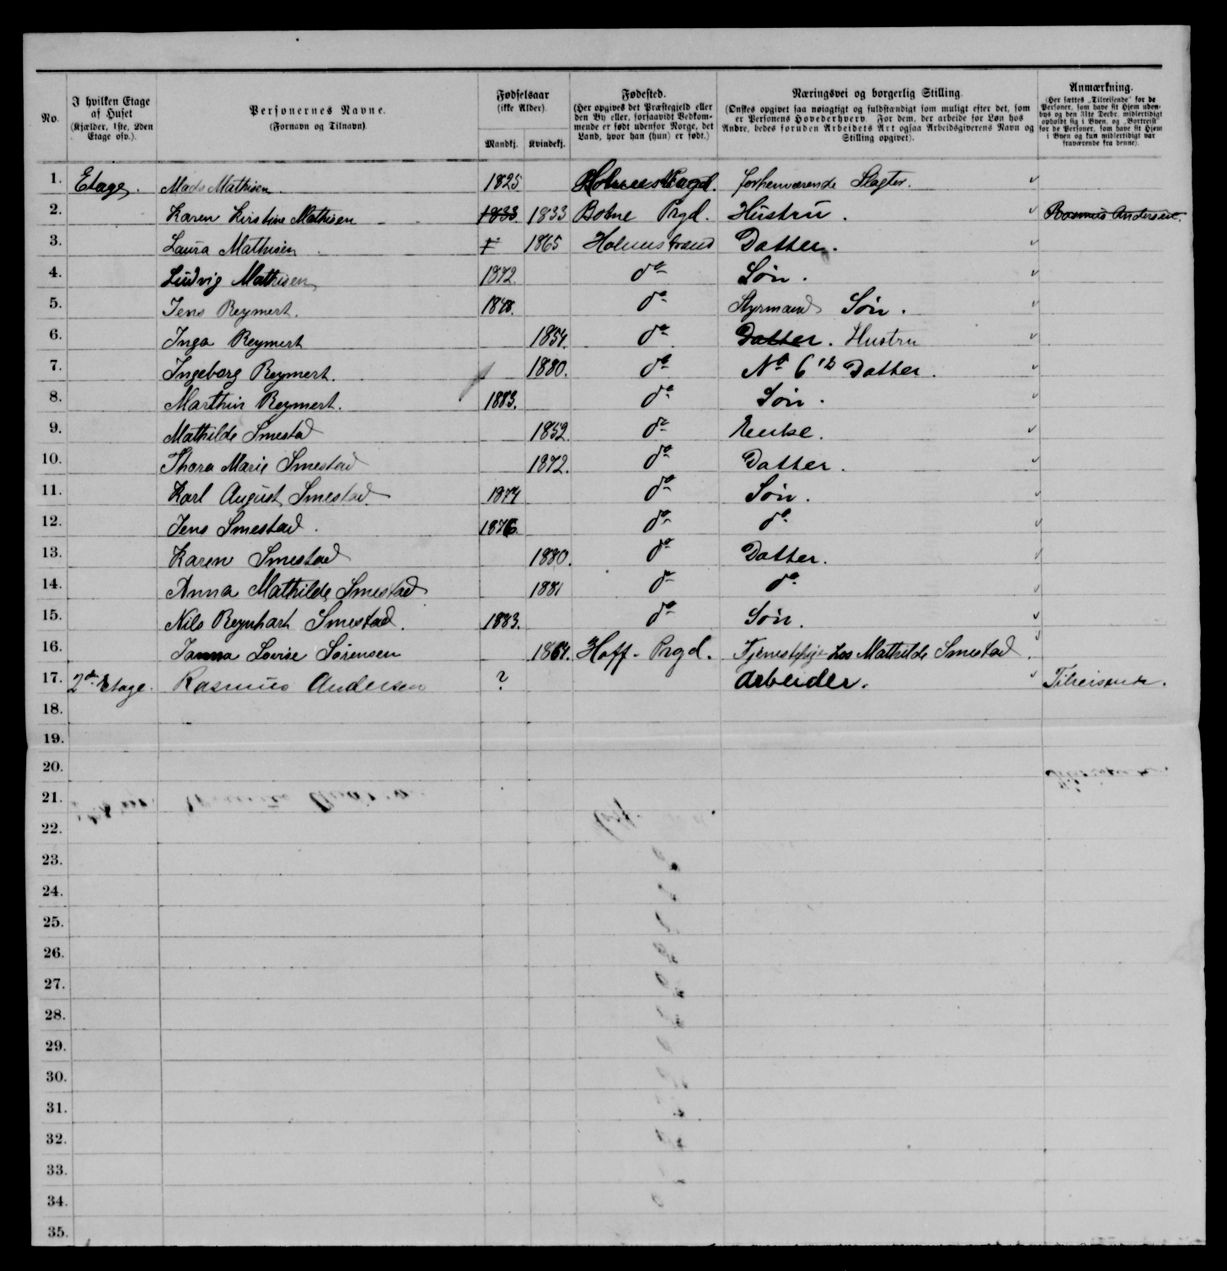 No.
I hvilken Etage af Huset (Kjælder, 1ste, 2den Etage osv.).
Personernes Navne. (Fornavn og Tilnavn)
Fødselsaar (ikke Alder).
Mandkj. Kvindekj.
Fødested. (Her opgives det Præstegjeld eller den By eller, forsaavidt Vedkommende er født udenfor Norge, det Land, hvor han (hun) er født.)
Næringsvei og borgerlig Stilling. (Ønskes opgivet saa nøiagtigt og fuldstændigt som muligt efter det, som er Personens Hovederhverv. For dem, der arbeide for Løn hos Andre, bedes foruden Arbeidets Art ogsaa Arbeidsgiverens Navn og Stilling opgivet).
Anmærkning. (Her sættes „Tilreisende" for de Personer, som have sit Hjem udenbys og den 31te Decbr. midlertidigt opholdt sig i Byen, og „Bortreist" for de Personer, som have sit Hjem i Byen og kun midlertidigt var fraværende fra denne).
1. Etage. Mads Mathisen 1825 forhenværende Slagter.
2. Karen Kirstine Mathisen 1833 1833 Botne Prgd. Hustru. Rasmus Andersen
3. Laura Mathisen 1865 Holmestrand Datter.
4. Ludvig Mathisen 1872 do Søn.
5. Jens Reymert. 1848. do Styrmand Søn.
6. Inga Reymert 1854. do Datter. Hustru
7. Ingeborg Reymert. 1880. do No 6's Datter.
8. Marthin Reymert. 1883. do Søn.
9. Mathilde Smestad 1852 do Enke.
10. Thora Marie Smestad 1872. do Datter.
11. Karl August Smestad 1874 do Søn.
12. Jens Smestad. 1876 do do
13. Karen Smestad 1880. do Datter.
14. Anna Mathilde Smestad 1881 do do
15. Nils Reynhart Smestad. 1883. do Søn.
16. Lovise Sørensen 1864. Hoff Prgd. hos Mathilde Smestad.
17. 2den Etage. Rasmus Andersen ? Arbeider. Tilreisende.
18.
19.
20.
21.
22.
23.
24.
25.
26.
27.
28.
29.
30.
31.
32.
33.
34.
35.